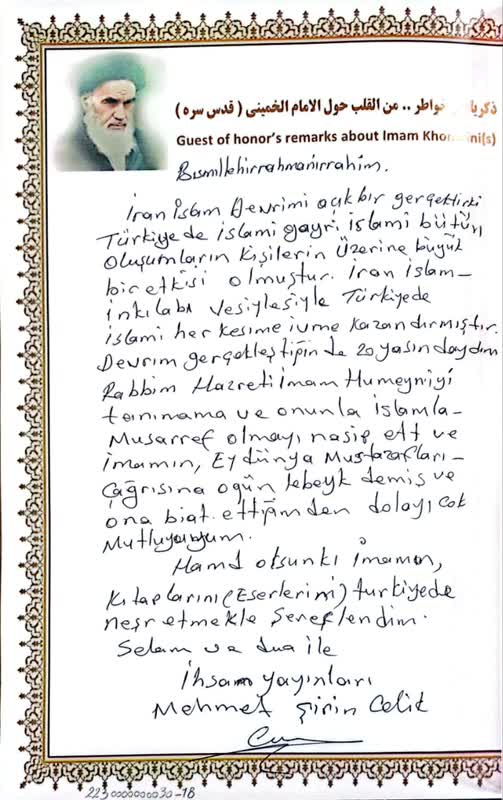 ذكريا خواطر .. من القلب حول الامام الخميني ( قدس سره )
Guest of honor's remarks about Imam Khomeini(s)
Bismillehirrahmanirrahim.
İran İslam Devrimi açık bir gerçektirki
Türkiyede islami gayri islami bütün
oluşumların kişilerin üzerine büyük
bir etkisi olmuştur. İran islam-
inkılabı vesiylesiyle Türkiyede
islami her kesime ivme kazandırmıştır.
Devrim gerçekleştiğinde 20 yasındaydım
Rabbim Hazreti imam Humeyniyi
tanınama ve onunla islamla-
Musarref olmayı nasip etti ve
imamın, Ey dünya Mustazafları-
Çağrısına ogün lebeyk demiş ve
ona biat ettiğimden dolayı çok
Mutluyuyum.
Hamd olsunki imamın,
Kitaplarını (Eserlerini) turkiyede
neşretmekle Şereflendim.
Selam ve dua ile
İhsam yayınları
Mehmet Şirin Celik
223000000030-18